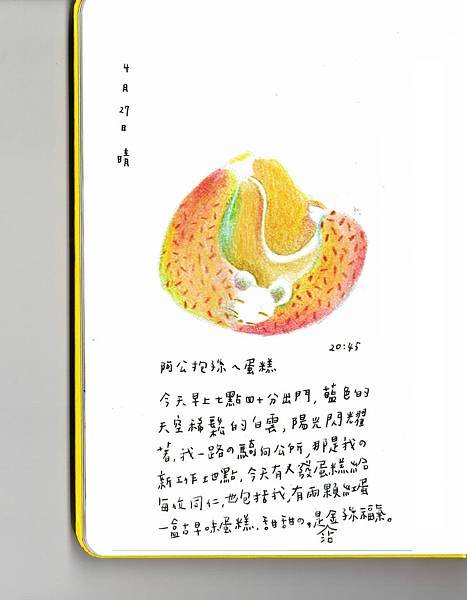 4月27日 晴
20:45
阿公抱孫ㄟ蛋糕
今天早上七點四十分出門,藍色的
天空稀鬆的白雲,陽光閃耀
著,我一路の騎向公所,那是我の
新工作地點,今天有人發蛋糕給
每位同仁,也包括我,有兩顆紅蛋
一盒古早味蛋糕,甜甜の,是金孫福氣。
沾